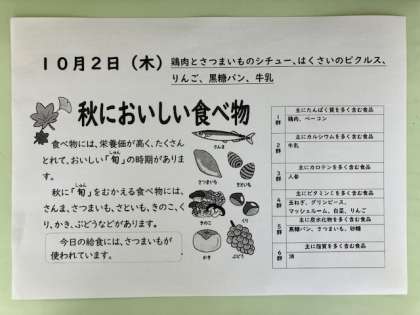 10月2日(木) 鶏肉とさつまいものシチュー、はくさいのピクルス、
りんご、黒糖パン、牛乳
秋においしい食べ物
食べ物には、栄養価が高く、たくさん
とれて、おいしい「旬」の時期がありま
す。
秋に「旬」をむかえる食べ物には、
さんま、さつまいも、さといも、きのこ、く
り、かき、ぶどうなどがあります。
今日の給食には、さつまいもが
使われています。
さんま
さつまいも
さといも
きのこ
くり
かき
ぶどう
1群
主にたんぱく質を多く含む食品
鶏肉、ベーコン
2群
主にカルシウムを多く含む食品
牛乳
3群
主にカロテンを多く含む食品
人参
4群
主にビタミンCを多く含む食品
玉ねぎ、グリンピース、
マッシュルーム、白菜、りんご
5群
主に炭水化物を多く含む食品
黒糖パン、さつまいも、砂糖
6群
主に脂質を多く含む食品
油